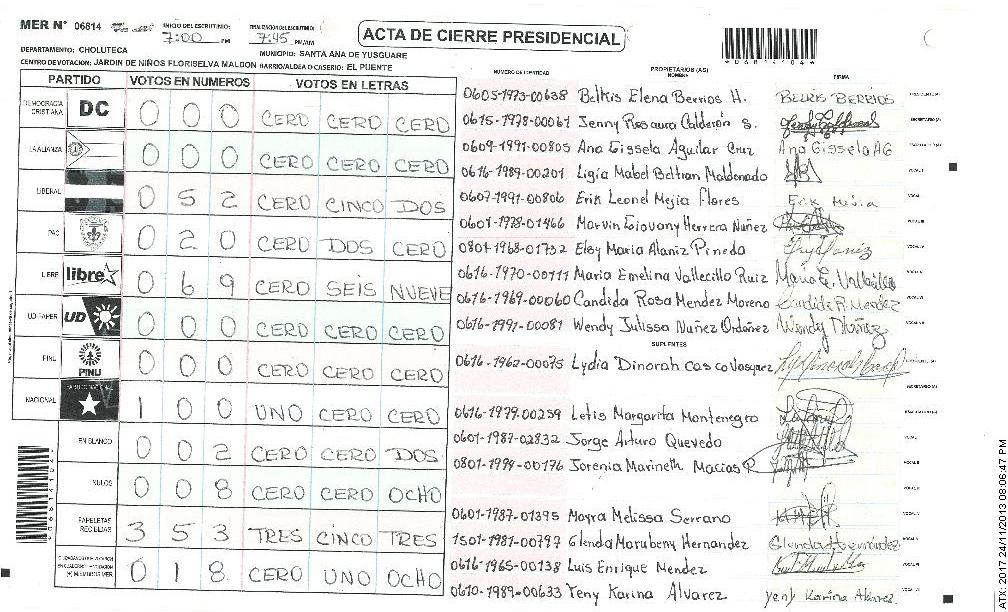 MER N° 06814
INICIO DEL ESCRUTINIO: 7:00 PM
FINALIZACION DEL ESCRUTINIO: 7:45 PM/AM
ACTA DE CIERRE PRESIDENCIAL
DEPARTAMENTO: CHOLUTECA
MUNICIPIO: SANTA ANA DE YUSGUARE
CENTRO DE VOTACION: JARDIN DE NIÑOS FLORISELVA MALDON BARRIO/ALDEA O CASERIO: EL PUENTE
PARTIDO VOTOS EN NUMEROS VOTOS EN LETRAS
DEMOCRACIA CRISTIANA DC 0 0 0 CERO CERO CERO
LA ALIANZA 0 0 0 CERO CERO CERO
LIBERAL 0 5 2 CERO CINCO DOS
PAC 0 2 0 CERO DOS CERO
LIBRE libre 0 6 9 CERO SEIS NUEVE
UD-FAPER UD 0 0 0 CERO CERO CERO
PINU PINU 0 0 0 CERO CERO CERO
NACIONAL 1 0 0 UNO CERO CERO
EN BLANCO 0 0 2 CERO CERO DOS
NULOS 0 0 8 CERO CERO OCHO
PAPELETAS RECIBIDAS 3 5 3 TRES CINCO TRES
(+) MIEMBROS MER 0 1 8 CERO UNO OCHO
NUMERO DE IDENTIDAD PROPIETARIOS (AS) NOMBRE FIRMA
0605-1973-00638 Belkis Elena Berrios H. BELKIS BERRIOS
0615-1978-00061 Jenny Rosaura Calderón S.
0609-1991-00805 Ana Gissela Aguilar Cruz Ana Gissela AG
0616-1989-00201 Ligia Mabel Beltran Maldonado
0607-1991-00806 Erik Leonel Mejia Flores Erik Mejia
0601-1978-01466 Marvin Giovany Herrera Nuñez
0801-1968-01732 Elsy Maria Alaniz Pineda
0616-1970-00111 Maria Emelina Vallecillo Ruiz Maria E. Vallecillo
0616-1969-00060 Candida Rosa Mendez Moreno Candida R. Mendez
0616-1991-00081 Wendy Julissa Nuñez Ordoñez Wendy Nuñez
SUPLENTES
0616-1962-00075 Lydia Dinorah Casco Vasquez
0616-1979-00259 Letis Margarita Montenegro
0601-1987-02832 Jorge Arturo Quevedo
0801-1994-00176 Jorenia Marineth Macias P.
0601-1987-01395 Mayra Melissa Serrano
1501-1981-00797 Glenda Marubeny Hernandez Glenda Hernández
0616-1965-00138 Luis Enrique Mendez
0610-1989-00633 Yeny Karina Álvarez Yeny Karina Alvarez
24/11/2013 08:06:47 PM